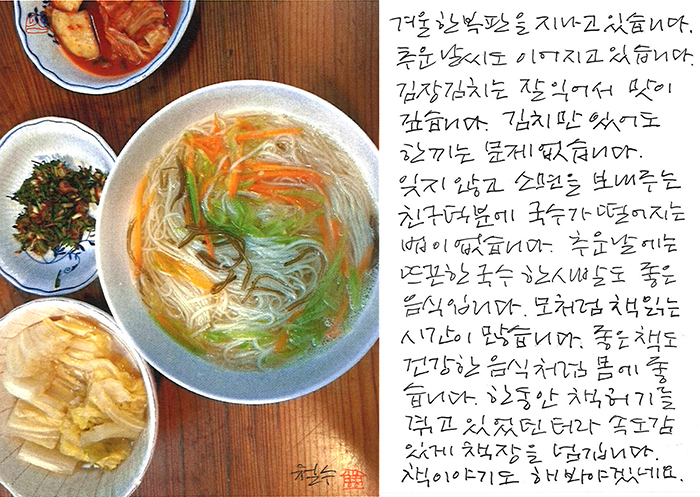 겨울 한복판을 지나고 있습니다.
추운 날씨도 이어지고 있습니다.
김장김치는 잘 익어서 맛이
깊습니다. 김치만 있어도
한끼는 문제 없습니다.
잊지 않고 소면을 보내주는
친구덕분에 국수가 떨어지는
법이 없습니다. 추운날에는
뜨끈한 국수 한사발도 좋은
음식입니다. 모처럼 책읽는
시간이 많습니다. 좋은책도
건강한 음식처럼 몸에 좋
습니다. 한동안 책허기를
겪고 있었던 터라 속도감
있게 책장을 넘깁니다.
책이야기도 해봐야겠네요.
철수